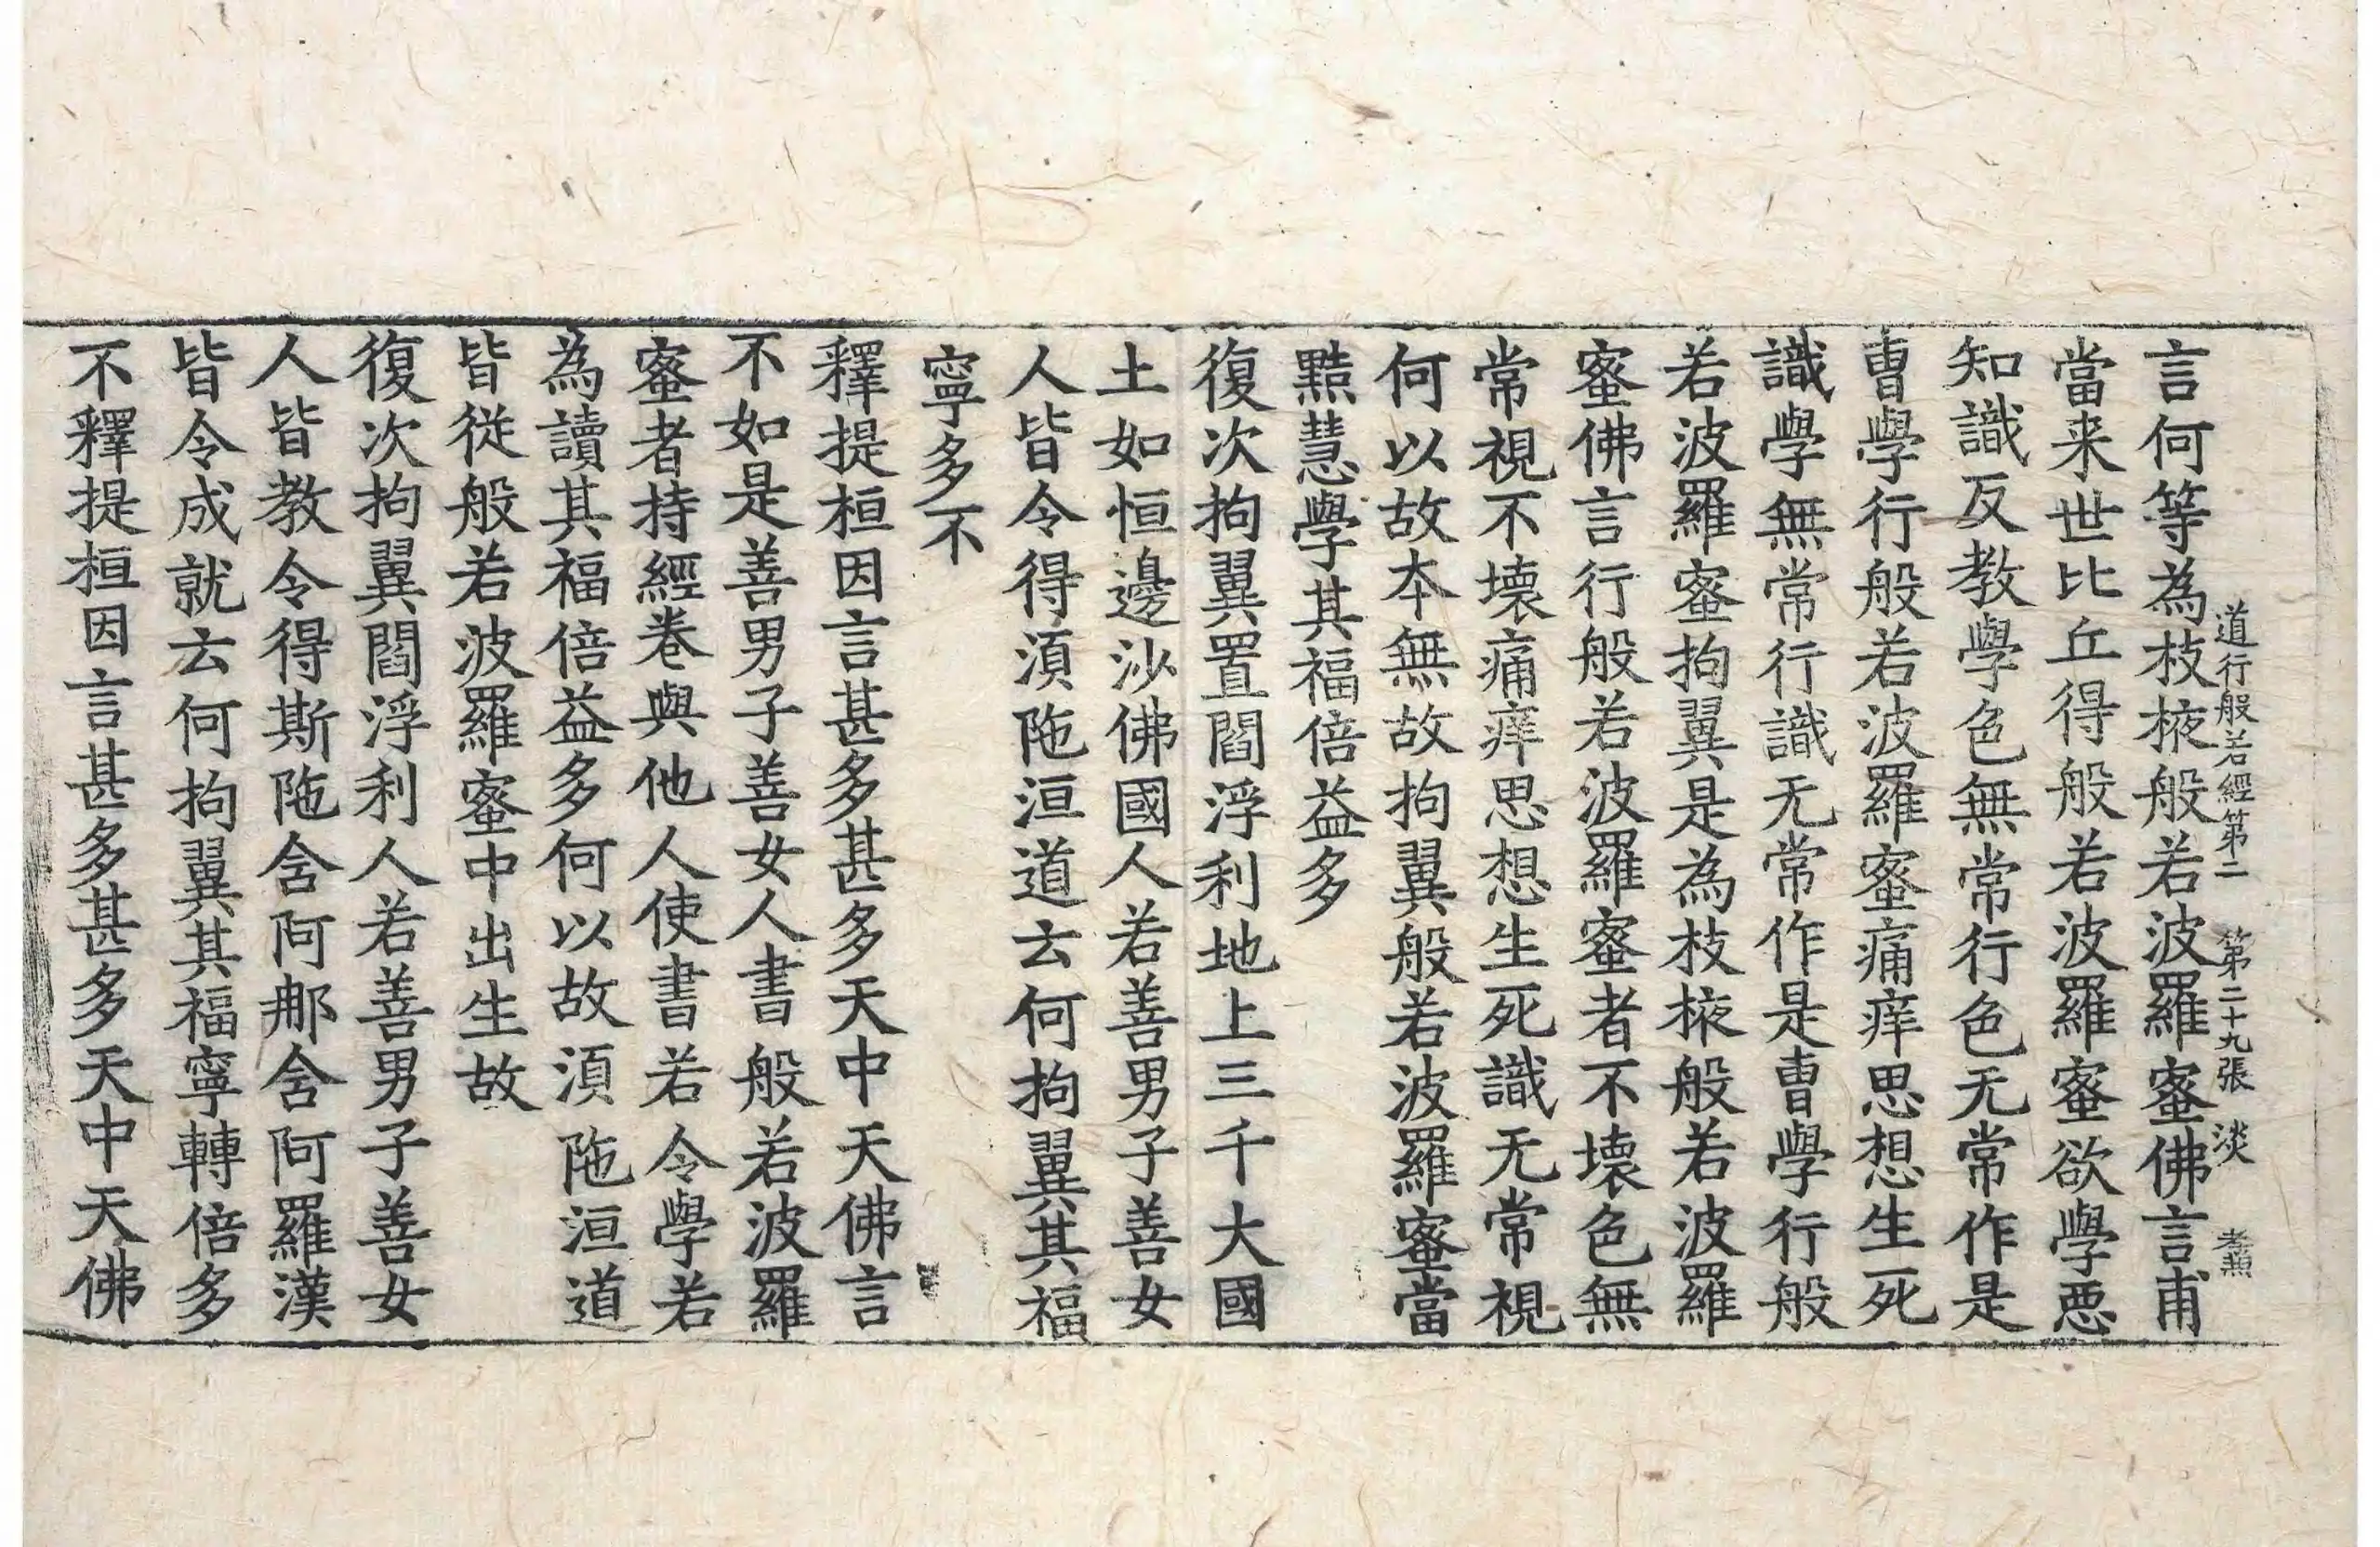 道行般若經第二　第二十九張　淡　老無
言何等為枝掖般若波羅蜜佛言甫
當来世比丘得般若波羅蜜欲學惡
知識反教學色無常行色无常作是
曺學行般若波羅蜜痛痒思想生死
識學無常行識无常作是曺學行般
若波羅蜜拘翼是為枝掖般若波羅
蜜佛言行般若波羅蜜者不壞色無
常視不壞痛痒思想生死識无常視
何以故本無故拘翼般若波羅蜜當
黠慧學其福倍益多
復次拘翼置閻浮利地上三千大國
土如恒邊沙佛國人若善男子善女
人皆令得湏陁洹道云何拘翼其福
寧多不
釋提桓因言甚多甚多天中天佛言
不如是善男子善女人書般若波羅
蜜者持經卷與他人使書若令學若
為讀其福倍益多何以故湏陁洹道
皆從般若波羅蜜中出生故
復次拘翼閻浮利人若善男子善女
人皆教令得斯陁含阿那含阿羅漢
皆令成就云何拘翼其福寧轉倍多
不釋提桓因言甚多甚多天中天佛